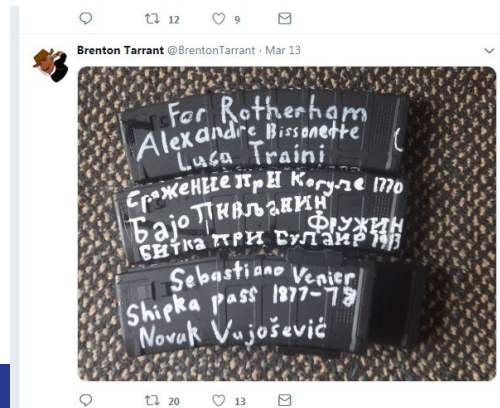 12 9
Brenton Tarrant @BrentonTarrant · Mar 13
For Rotherham
Alexandre Bissonette
Luca Traini
Сражение при Кагуле 1770
Бајо Пивљанин
Фружин
Битка при Булаир 1913
Sebastiano Venier
Shipka pass 1877-78
Novak Vujošević
20 13